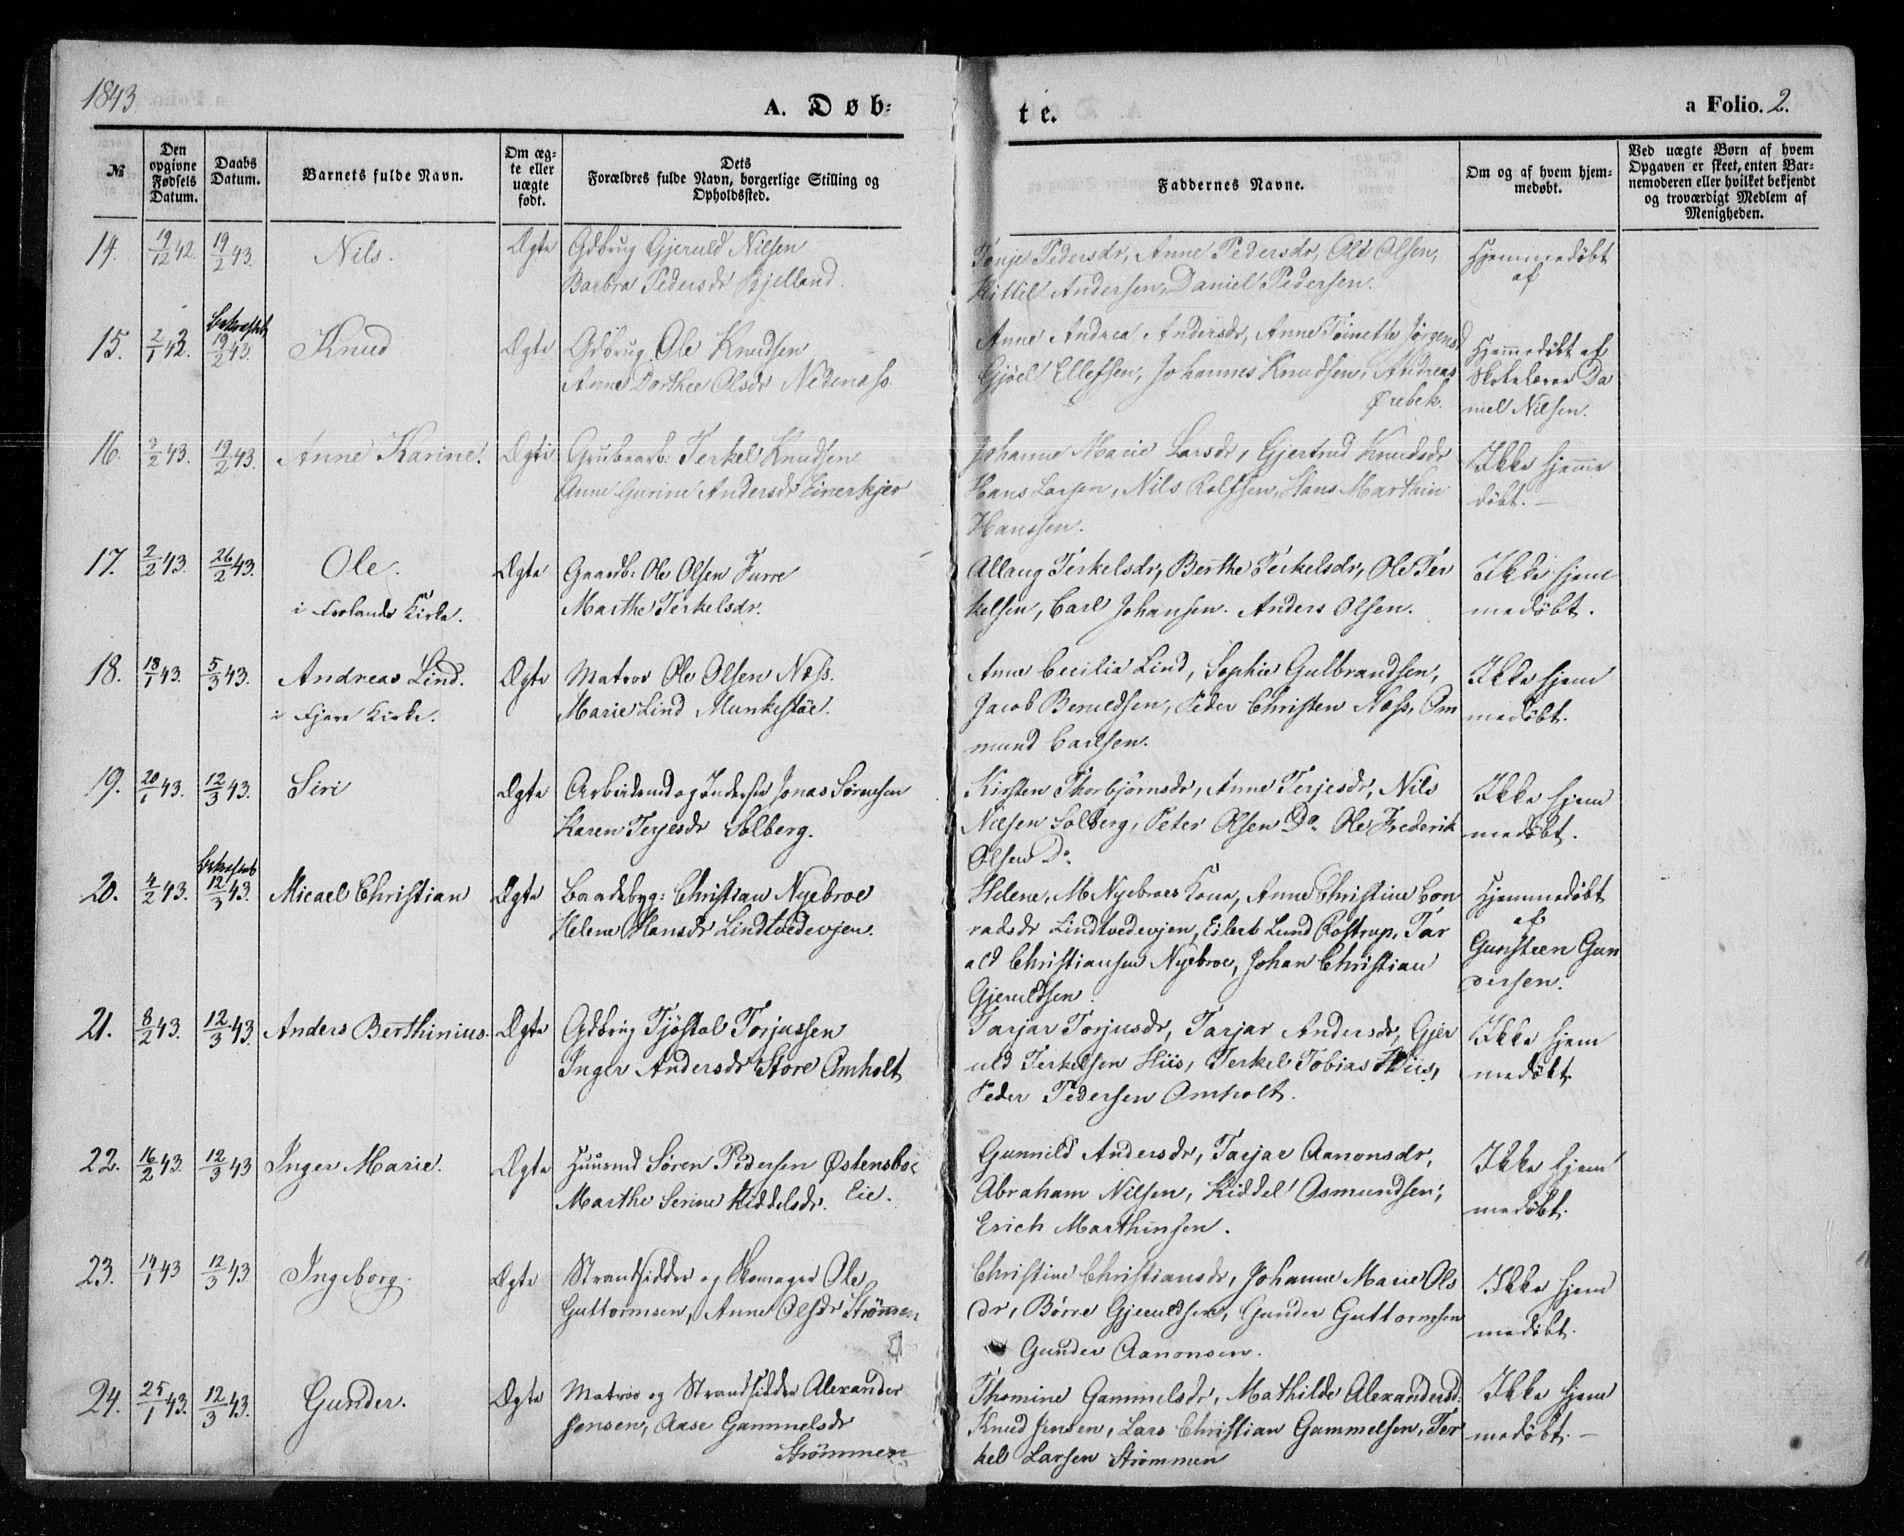 1843.
A. Døb-
te.
a Folio. 2.
№
Den opgivne Fødsels Datum.
Daabs Datum.
Barnets fulde Navn.
Om ægte eller uægte født.
Dets Forældres fulde Navn, borgerlige Stilling og Opholdssted.
Faddernes Navne.
Om og af hvem hjemmedøbt.
Ved uægte Børn af hvem Opgaven er skeet, enten Barnemoderen eller hvilket bekjendt og troværdigt Medlem af Menigheden.
14. 19/12 42. 19/2 43. Nils. Ægte
Gdbrug Gjeruld Nilsen
Barbra Pedersdr Kjelland.
Tonje Pedersdr, Anne Pedersdr, Ole Olsen,
Kittil Andersen, Daniel Pedersen.
Hjemmedøbt
af
15. 2/1 42. bekræftet 19/2 43. Knud Ægte
Gdbrug. Ole Knudsen
Anne Dorthea Olsdr Nedenæss.
Anne Andrea Andersdr, Anne Tonette Jørgensd
Gjøel Ellefsen, Johannes Knudsen, Andreas
Ørebek.
Hjemmedøbt af
Skolelærer Da
niel Nilsen.
16. 2/2 43. 19/2 43. Anne Karine. Ægte
Grubearb: Terkel Knudsen
Anne Gurine Andersdr Einerkjer
Johanne Marie Larsdr, Gjertrud Knudsdr
Hans Larsen, Nils Rolfsen, Hans Marthin
Hanssen.
Ikke hjemme
døbt. –
17. 2/2 43. 26/2 43. Ole. Ægte
i Frolands Kirke.
Gaardb: Ole Olsen Furre
Marthe Terkelsdr.
Allaug Terkelsdr, Berthe Terkelsdr, Ole Ter
kelsen, Carl Johansen. Anders Olsen.
Ikke hjem
medøbt.
18. 18/1 43. 5/3 43. Andreas Lind. Ægte
i Fjære Kirke.
Matros Ole Olsen Næss.
Marie Lind Munkestøe.
Anne Cecilia Lind, Sophie Gulbrandsen,
Jacob Beruldsen, Peder Christen Næss, Om
mund Carlsen.
Ikke hjem
medøbt.
19. 20/1 43. 12/3 43. Siri Ægte
Arbeidsmd og Inderst Jonas Sørensen
Karen Terjesdr Solberg.
Kirsten Thorbjørnsdr, Anne Terjesdr, Nils
Nilsen Solberg, Peter Olsen Do. Ole Frederik
Olsen Do.
Ikke hjem
medøbt.
20. 4/2 43. bekræftet 12/3 43. Micael Christian Ægte
Baadsbyg: Christian Nyebroe
Helene Hansdr Lindtvedevjen.
Helene, M Nyebroes Kone, Anne Christine Con
radsdr Lindtvedevjen, Eilert Lund Rostrup, Tar
ald Christiansen Nyebroe, Johan Christian
Gjeruldsen.
Hjemmedøbt
af
Gunsteen Gun
dersen.
21. 8/2 43. 12/3 43. Anders Berthinius. Ægte
Gdbrug Tjøstol Torjussen
Inger Andersdr Store Omholt
Tarjar Torjusdr, Tarjar Andersdr, Gjer
uld Terkelsen Hiis, Terkel Tobias Hiis,
Peder Pedersen Omholt.
Ikke hjem
medøbt
22. 16/2 43. 12/3 43 Inger Marie. Ægte
Huusmd Søren Pedersen Østensboe
Marthe Serine Kiddelsdr. Eie.
Gunnild Andersdr, Tarjar Aanonsdr,
Abraham Nilsen, Kiddel Osmundsen,
Erich Marthinsen.
Ikke hjem
medøbt.
23. 14/1 43 12/3 43. Ingeborg. Ægte
Strandsidder og Skomager Ole
Guttormsen, Anne Olsdr Strømmen
Christine Christiansdr, Johanne Marie Ols
dr, Børre Gjeruldsen, Gunder Guttormsen
Gunder Aanonsen.
Ikke hjem
medøbt.
24. 25/1 43. 12/3 43. Gunder. Ægte
Matros og Strandsidder Alexander
Jensen, Aase Gammelsdr
Strømmen
Thomine Gammelsdr, Mathilde Alexandersd.
Knud Jensen, Lars Christian Gammelsen, Ter
kel Larsen Strømmen
Ikke hjem
medøbt. –